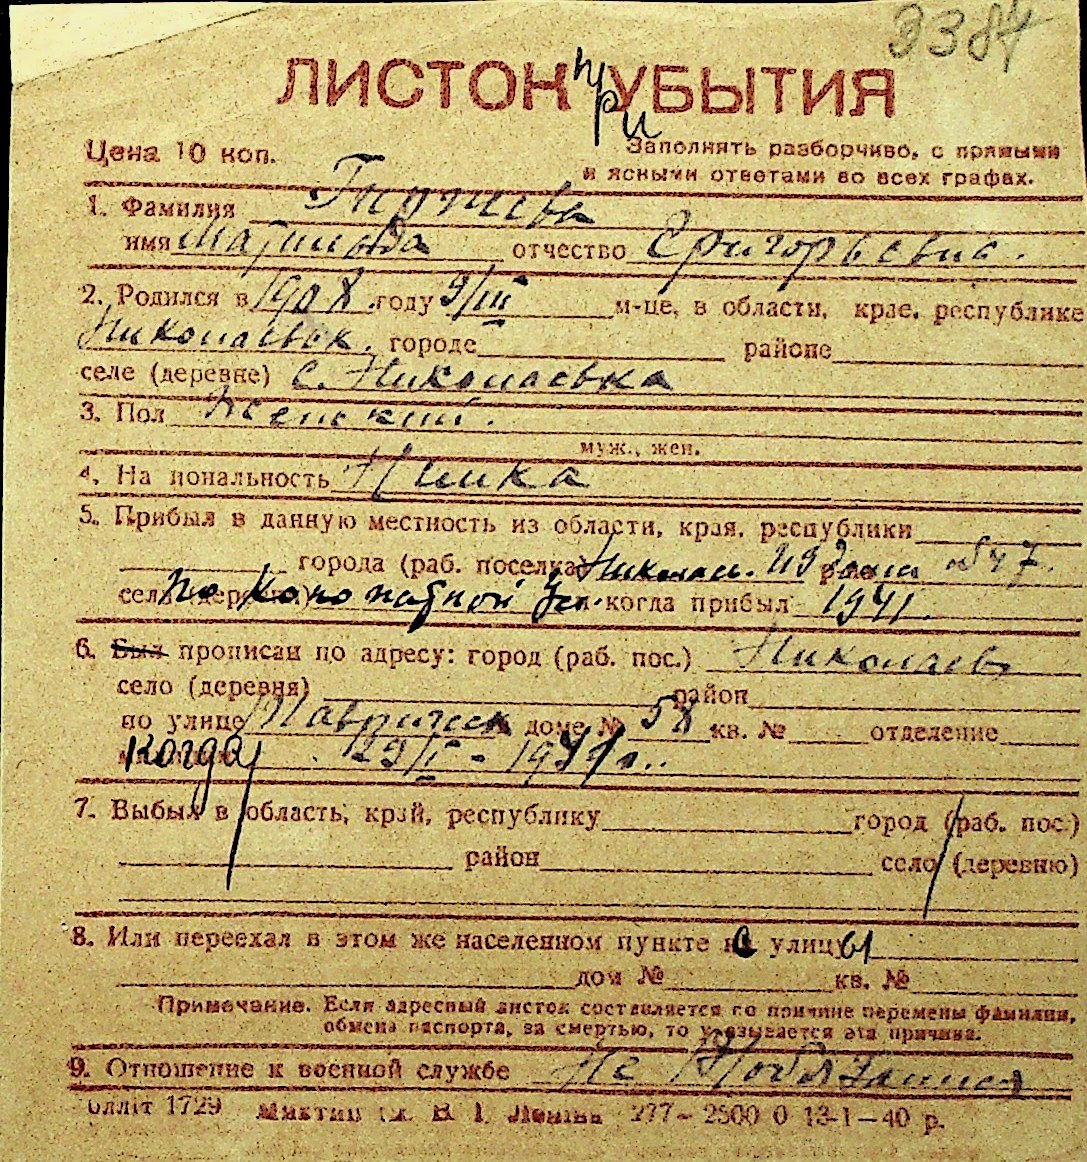 3384
ЛИСТОК при УБЫТИЯ
Цена 10 коп.
Заполнять разборчиво, с прямыми
и ясными ответами во всех графах.
1. Фамилия
имя Матильда отчество Григорьевна.
2. Родился в 1908 году 9/III м-це, в области, крае, республике
Николаевск. городе районе
селе (деревне) с. Николаевка
3. Пол Женский.
муж., жен.
4. На иональность Немка
5. Прибыл в данную местность из области, края, республики
города (раб. поселка) Николаев. из дома №47.
села (деревни) по Канатной ул. когда прибыл 1941.
6. Был прописан по адресу: город (раб. пос.) Николаев
село (деревня) район
по улице Тавричес доме № 58 кв. № отделение
когда 1941 г.
7. Выбыл в область, край, республику город (раб. пос.)
район село (деревню)
8. Или переехал в этом же населенном пункте с улицы
дом № кв. №
Примечание. Если адресный листок составляется по причине перемены фамилии,
обмена паспорта, за смертью, то указывается эта причина.
9. Отношение к военной службе Не
1729 277-2500 0 13-1-40 р.